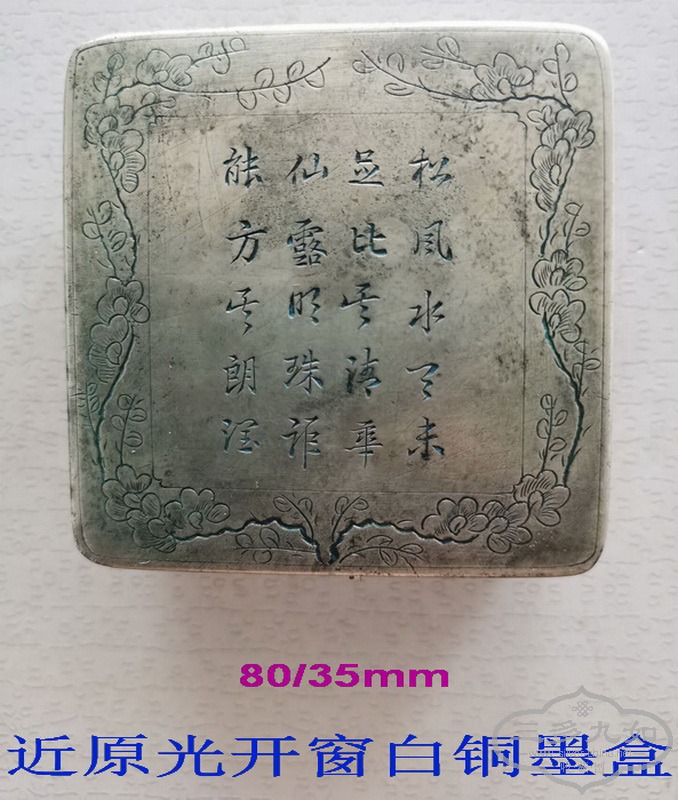 松風水月未
足比其清華
仙露明珠詎
能方其朗潤
80/35mm
近原光开窗白铜墨盒
三多九如